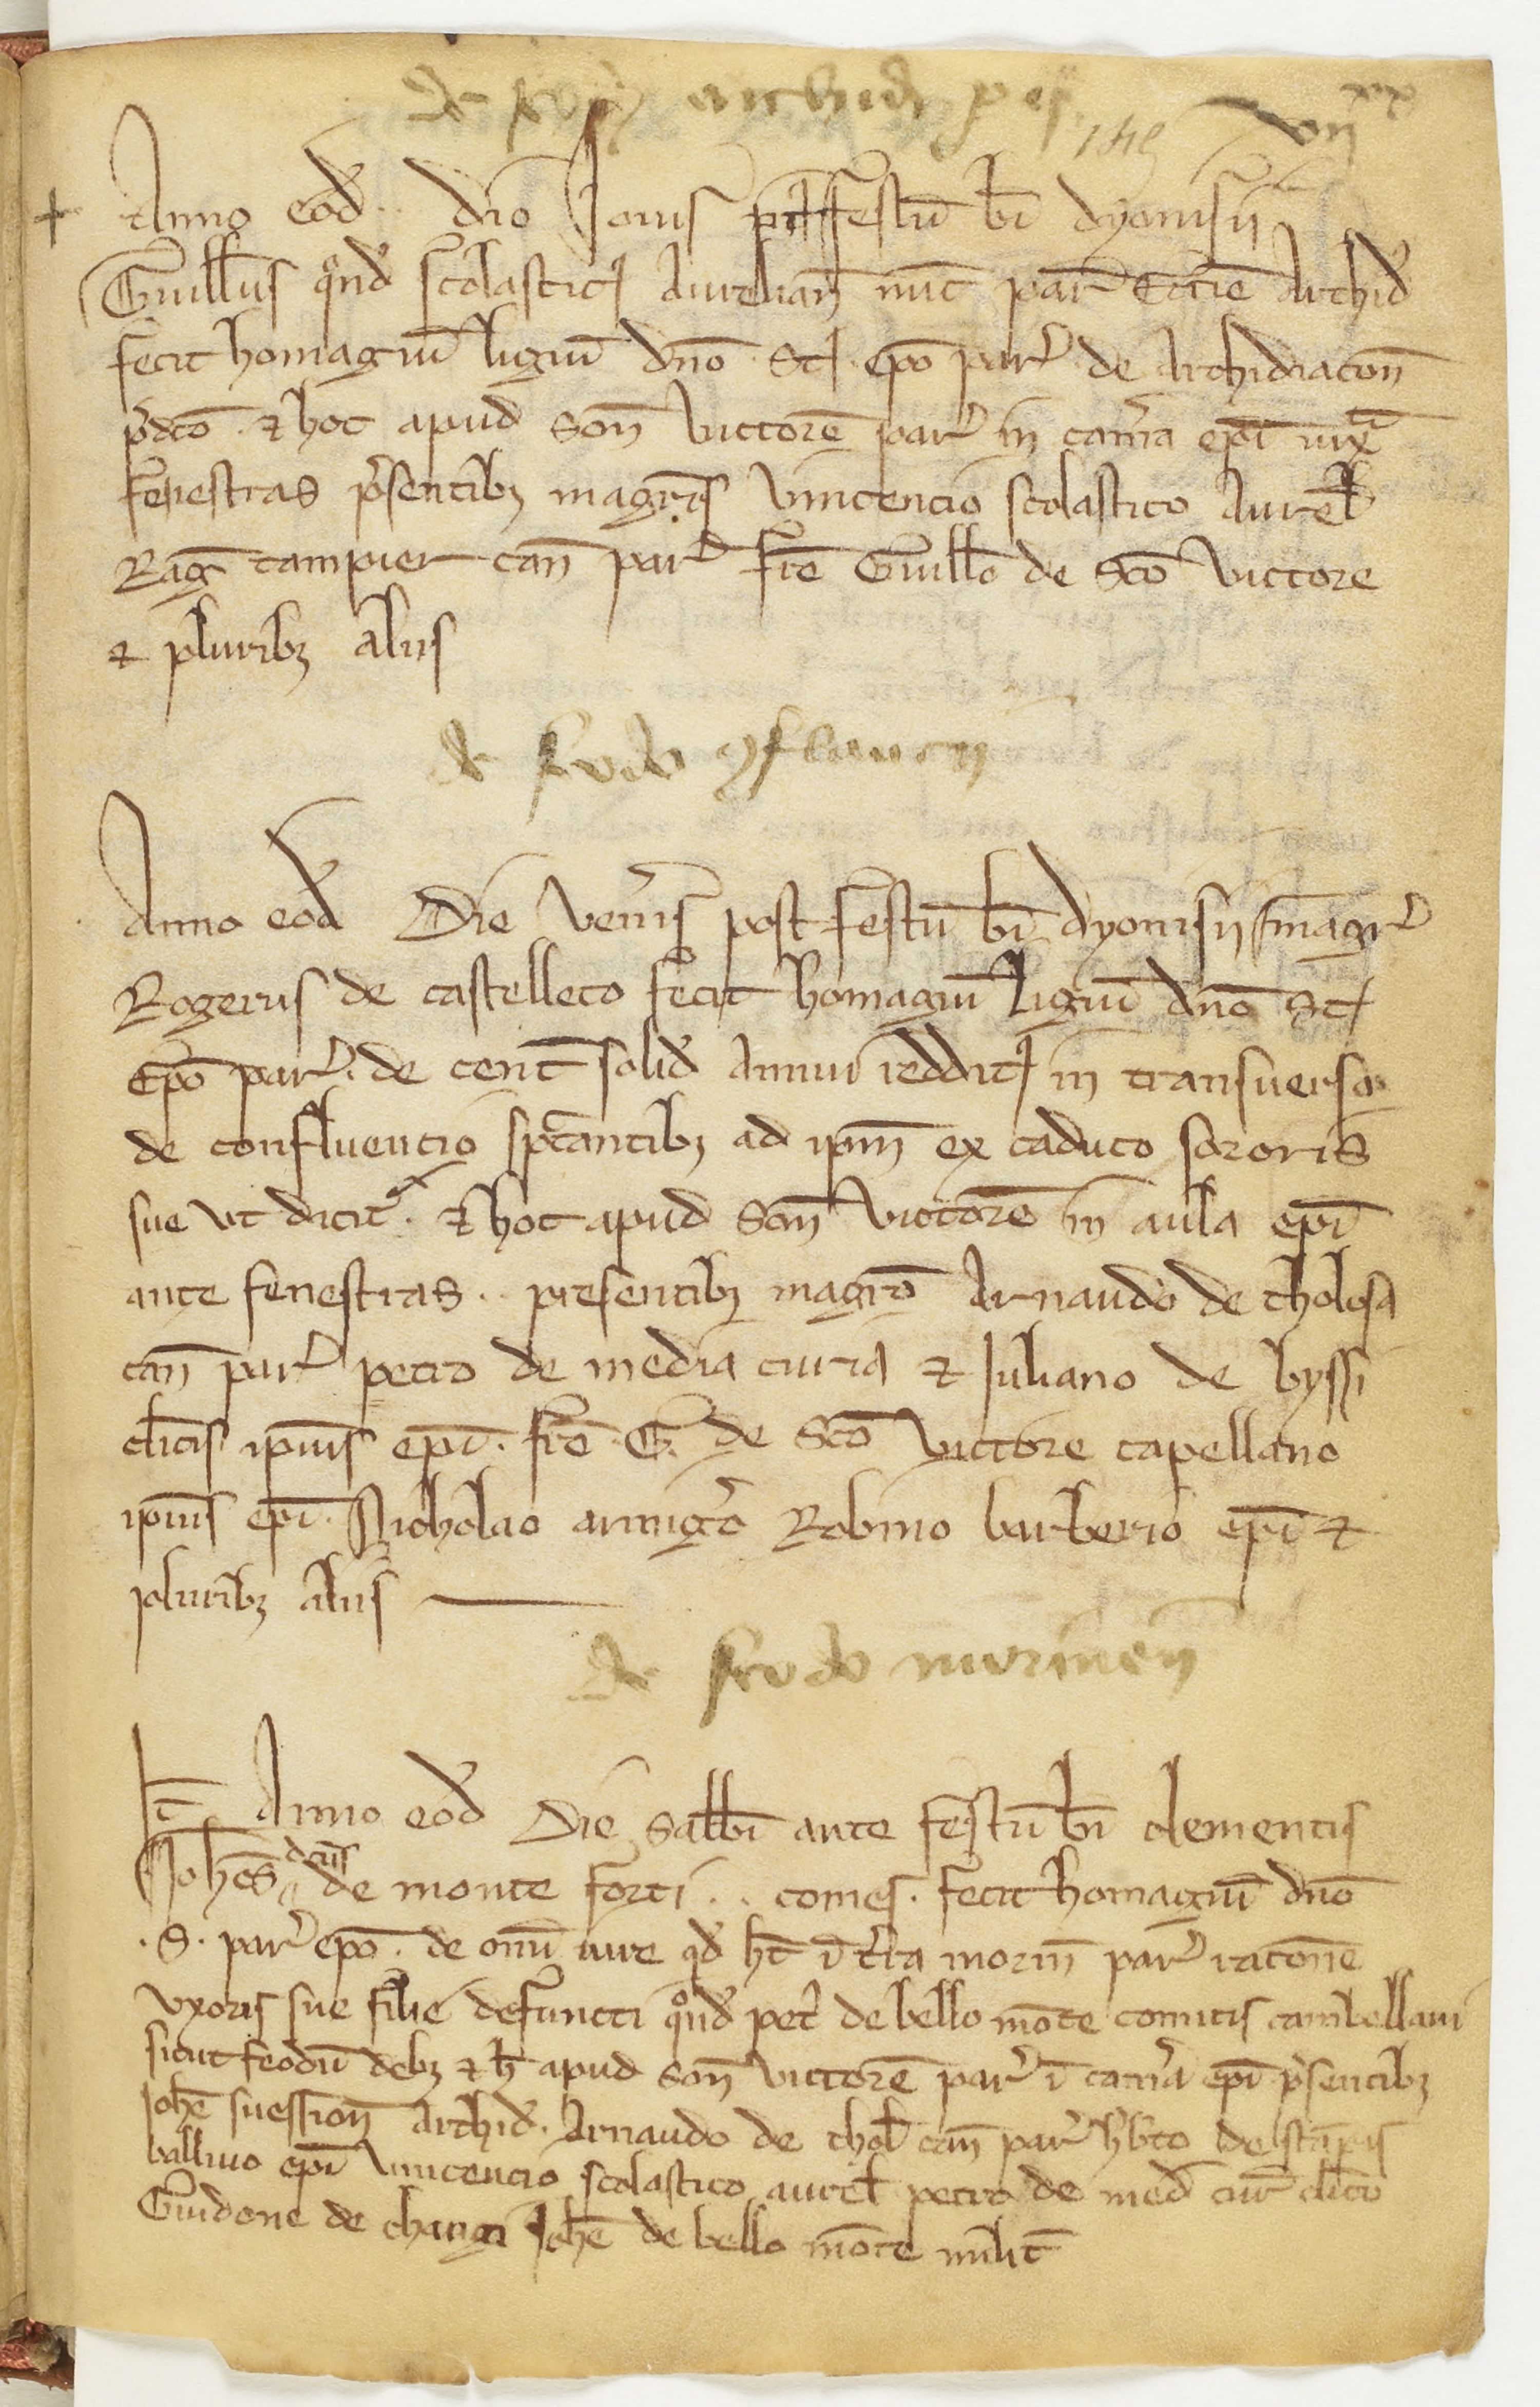 vii xx
Anno eod. dn̄o Jouis post festū bī dyonisii
Guill̄us q̊nd scolasticꝰ Aurelian̄ nūc par̄ eccīe Archid̄
fecit homagiū ligiū dn̄o . Stꝰ . ep̄o par̄ . de Archidiacon̄
p̄dc̄o . ⁊ hoc apud Scn̄ Victorē par̄ in cam̄a ep̄i iuxᵃ
fenestras p̄sentibꝫ magr̄is Vincencio scolastico Aurel̄
Raḡ tampier can̄ par̄ fr̄e Guill̄o de Sc̄o Victore
⁊ pluribꝫ aliis
de feodo ꝯfluencii
Anno eod̄ Die Ven̄is post festū bī dyonisii magr̄
Rogerus de castelleto fecit homagiū Ligiū dn̄o Stꝰ
Ep̄o par̄ . de cent̄ solid̄ Annui redditꝰ in transuerso
de confluencio spectantibꝫ ad ip̄m ex caduco sororis
sue vt dicit . ⁊ hoc apud Scn̄ Victorē in aula ep̄i
ante fenestras . . presentibꝫ magr̄o Arnaudo de tholosa
can̄ par̄ petro de media curia ⁊ Juliano de byssi
cl̄icis ip̄ius ep̄i . fr̄e . G . de Sc̄o Victore capellano
ip̄ius ep̄i . Nicholao armiḡo Robino barberio ep̄i ⁊
pluribꝫ aliis
de feodo
Anno eod̄ Die Sabb̄i ante festū bī clementis
Joh̄es dc̄us de monte forti . . comes . fecit homagiū dn̄o
. S . par̄ ep̄o . de om̄i iure qd̄ ht̄ ī t̄ra morn̄ par̄ racōne
vxoris sue filie defuncti q̊nd̄ pet̄ de bello mōte comitis cambellani
sicut feodū debꝫ ⁊ h̄ apud Scn̄ Victorē par̄ ī cam̄a ep̄i p̄sentibꝫ
Joh̄e suession̄ Archid̄ . Arnaudo de thol̄ can̄ par̄ h̄b̄to de stāpis
balliuo ep̄i Vincencio scolastico aurel̄ petro de med̄ cur̄ cl̄ico
Guidone de changi Joh̄e de bello mōte milit̄